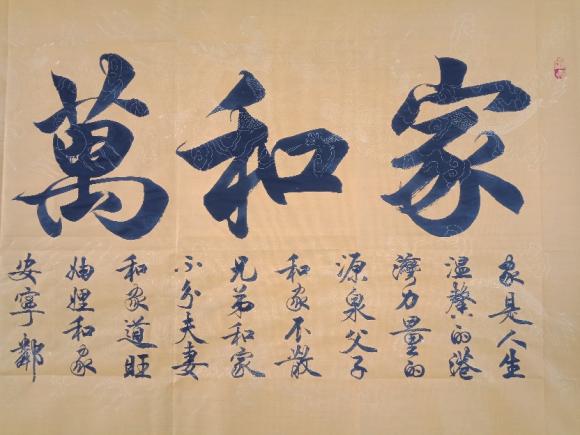 家和萬
家是人生
温馨的港
灣力量的
源泉父子
和家不散
兄弟和家
不分夫妻
和家道旺
妯娌和家
安寧鄰